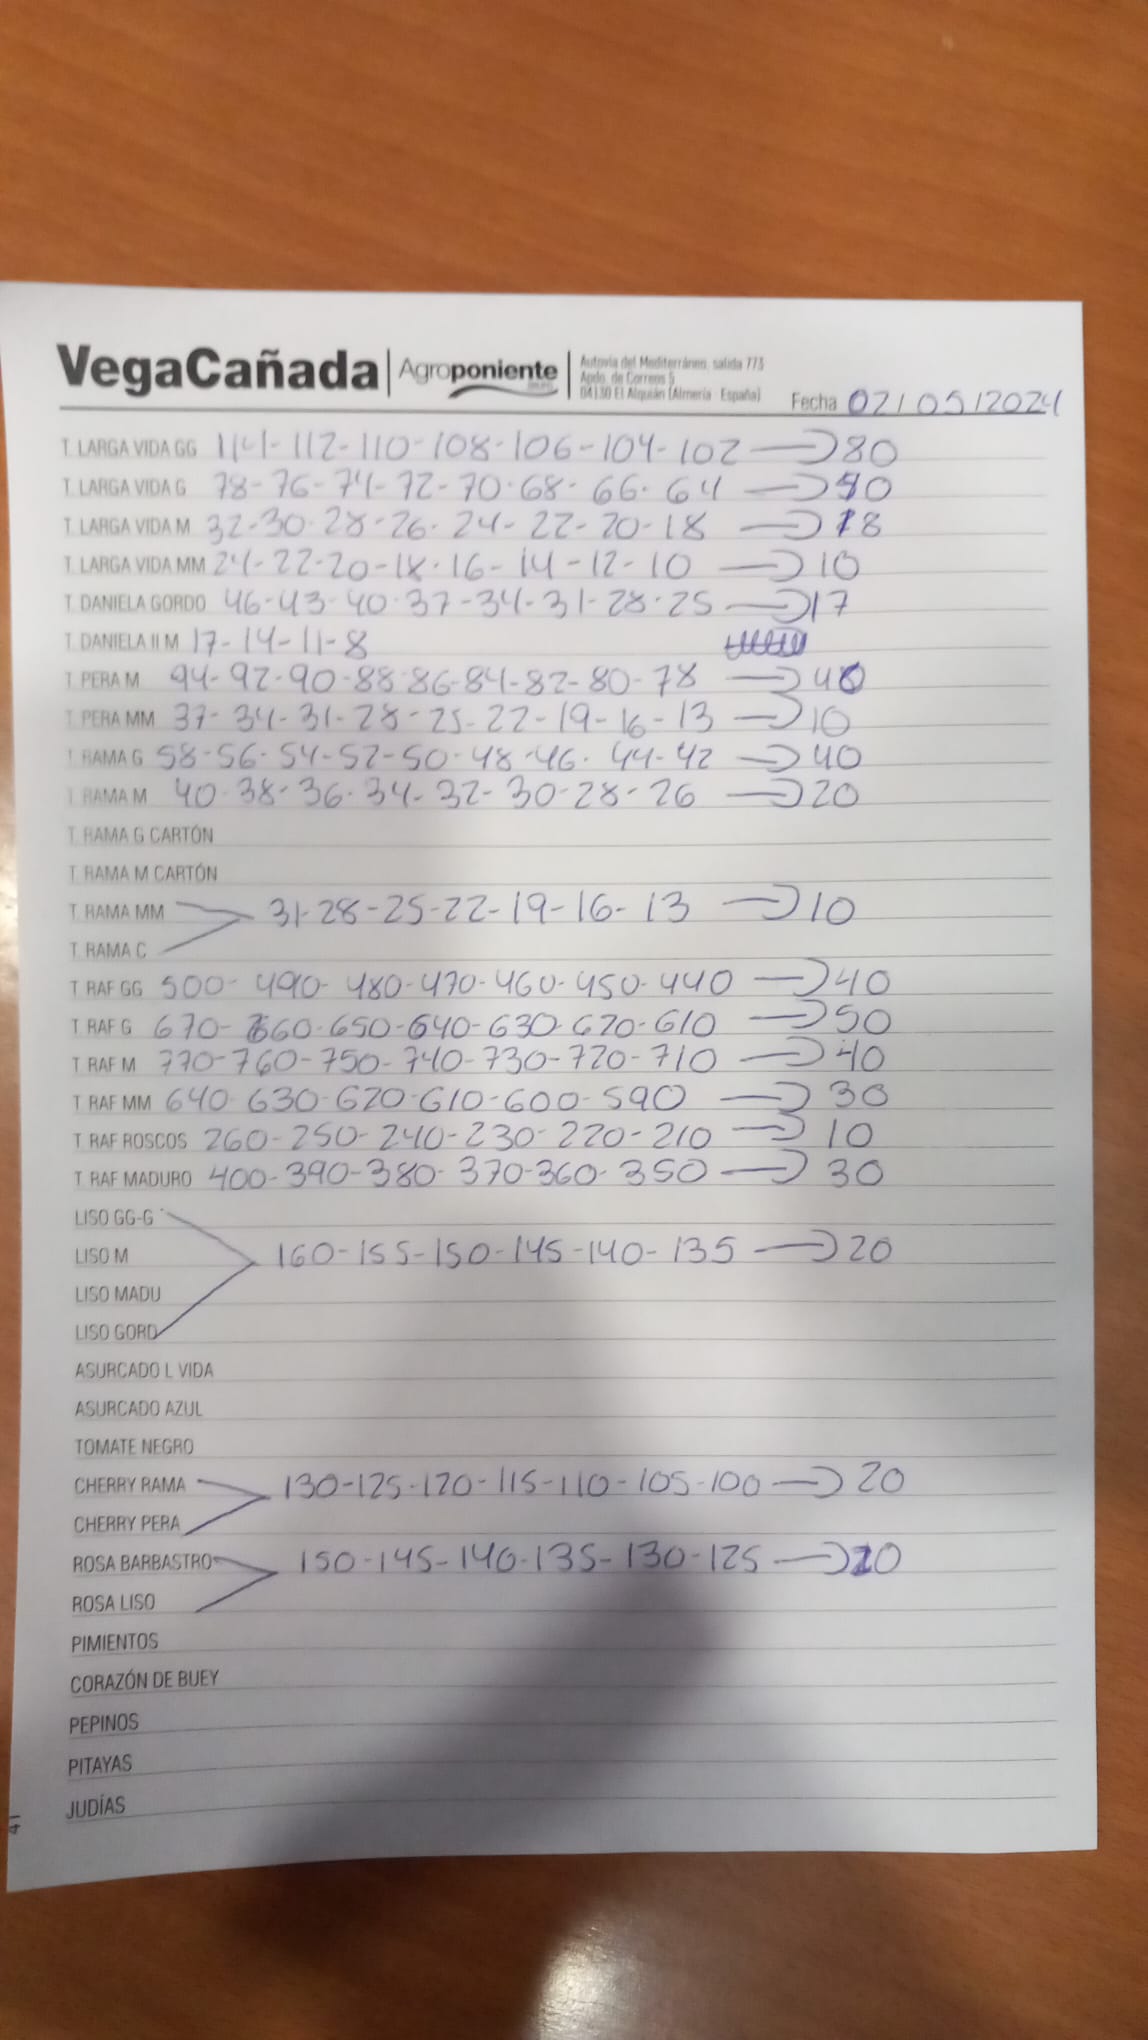 VegaCañada | Agroponiente | Autovía del Mediterráneo, salida 773
Apdo. de Correos 5
04130 El Alquián (Almería España)
Fecha 02/05/2024
T. LARGA VIDA GG 114-112-110-108-106-104-102 → 80
T. LARGA VIDA G 78-76-74-72-70-68-66-64 → 50
T. LARGA VIDA M 32-30-28-26-24-22-20-18 → 18
T. LARGA VIDA MM 24-22-20-18-16-14-12-10 → 10
T. DANIELA GORDO 46-43-40-37-34-31-28-25 → 17
T. DANIELA II M 17-14-11-8
T. PERA M 94-92-90-88-86-84-82-80-78 → 40
T. PERA MM 37-34-31-28-25-22-19-16-13 → 10
T. RAMA G 58-56-54-52-50-48-46-44-42 → 40
T. RAMA M 40-38-36-34-32-30-28-26 → 20
T. RAMA G CARTÓN
T. RAMA M CARTÓN
T. RAMA MM 31-28-25-22-19-16-13 → 10
T. RAMA C
T RAF GG 500-490-480-470-460-450-440 → 40
T RAF G 670-660-650-640-630-620-610 → 50
T RAF M 770-760-750-740-730-720-710 → 40
T RAF MM 640-630-620-610-600-590 → 30
T RAF ROSCOS 260-250-240-230-220-210 → 10
T RAF MADURO 400-390-380-370-360-350 → 30
LISO GG-G
LISO M 160-155-150-145-140-135 → 20
LISO MADU
LISO GORD
ASURCADO L VIDA
ASURCADO AZUL
TOMATE NEGRO
CHERRY RAMA 130-125-120-115-110-105-100 → 20
CHERRY PERA
ROSA BARBASTRO 150-145-140-135-130-125 → 20
ROSA LISO
PIMIENTOS
CORAZÓN DE BUEY
PEPINOS
PITAYAS
JUDÍAS